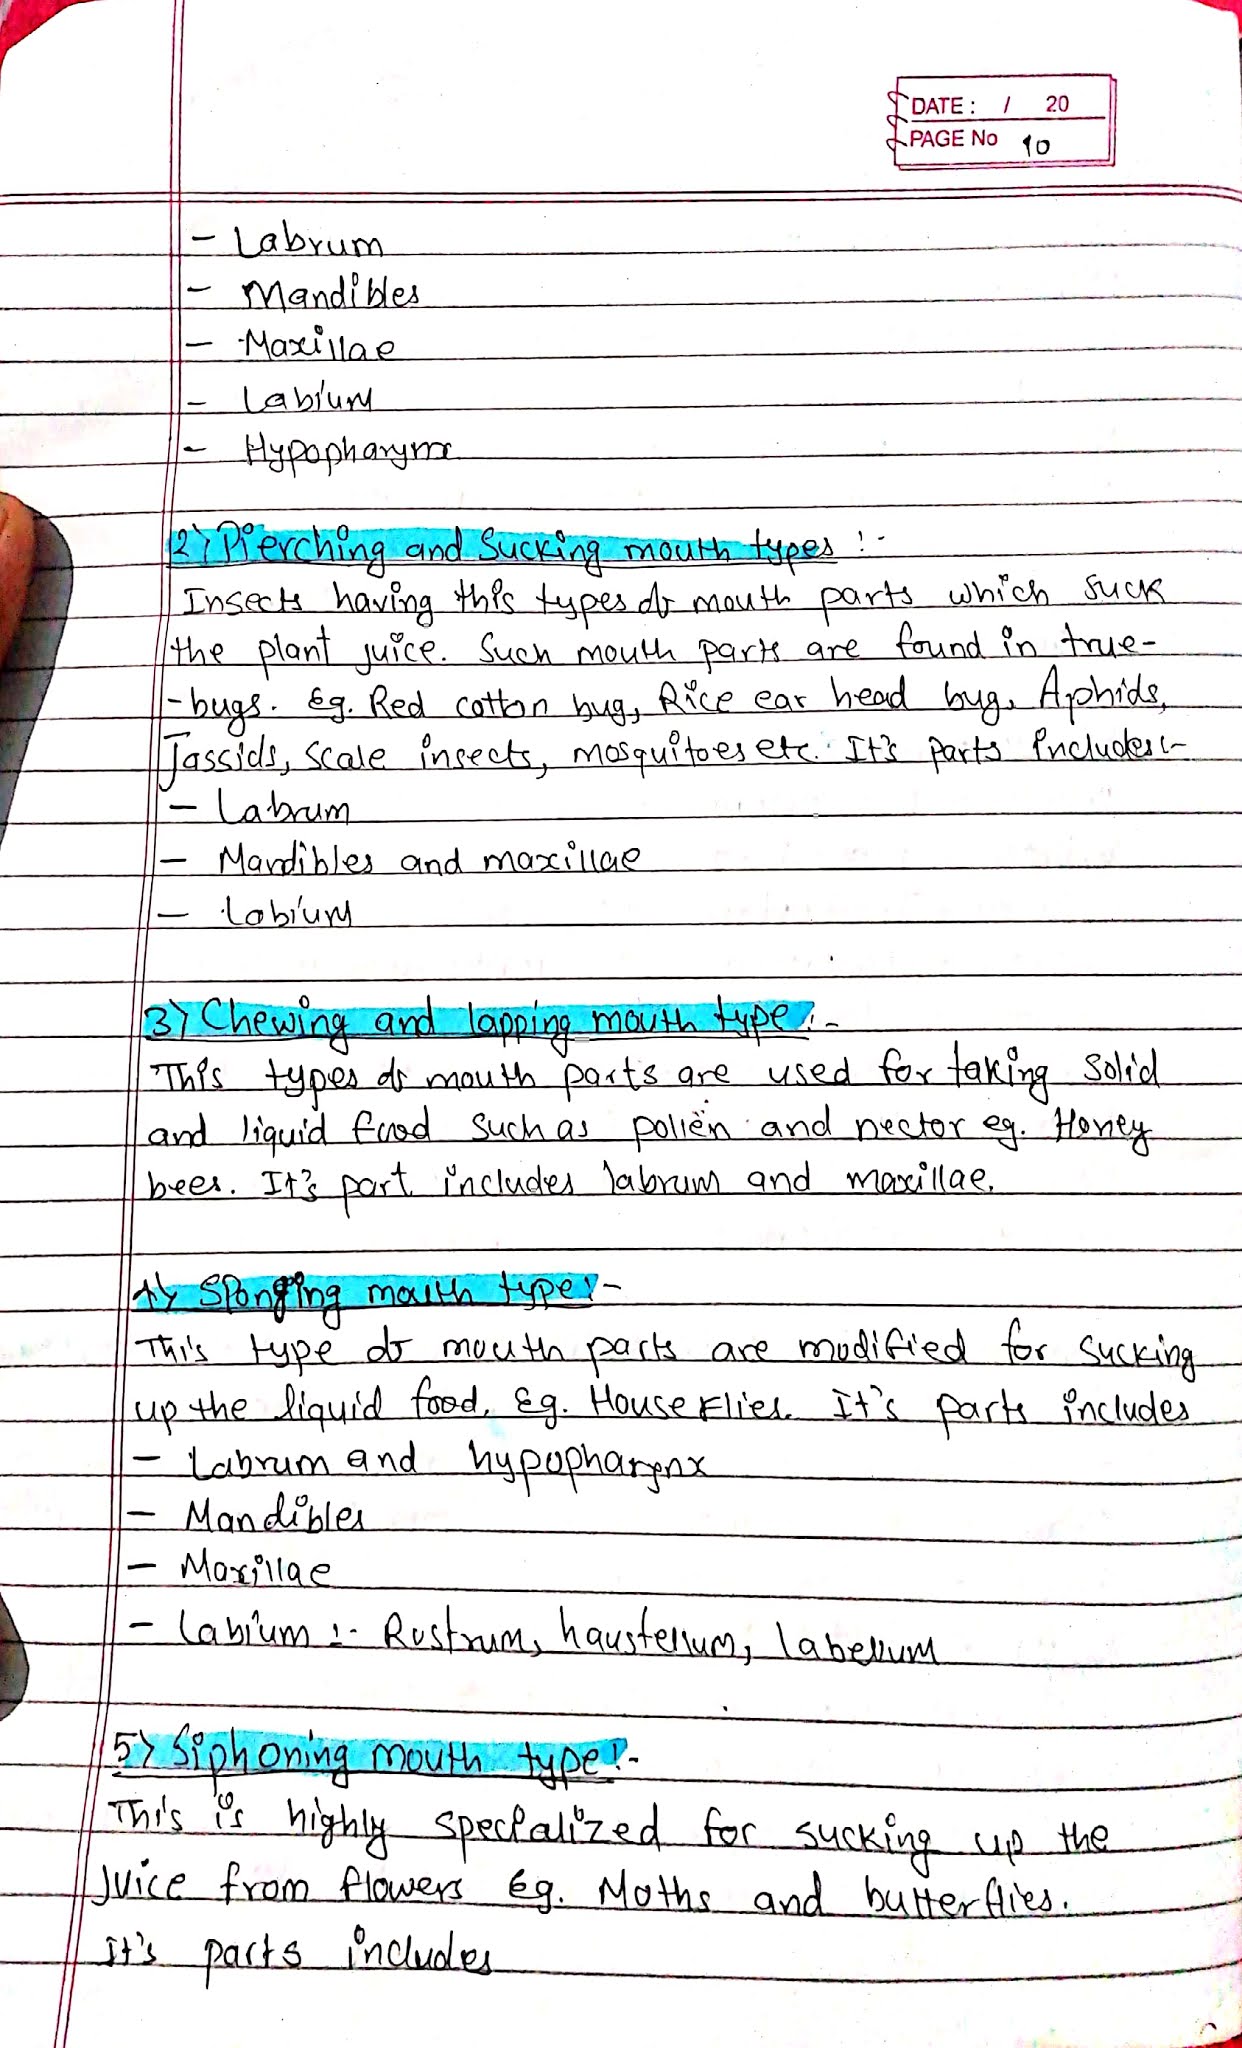 DATE : / 20
PAGE No 10
- Labrum
- Mandibles
- Maxillae
- Labium
- Hypopharynx
2) Pierching and Sucking mouth types :-
Insects having this types of mouth parts which suck
the plant juice. Such mouth parts are found in true-
-bugs. Eg. Red cotton bug, Rice ear head bug, Aphids,
Jassids, scale insects, mosquitoes etc. It's parts includes:-
- Labrum
- Mandibles and maxillae
- Labium
3) Chewing and lapping mouth type :-
This types of mouth parts are used for taking solid
and liquid food such as pollen and nector eg. Honey
bees. It's part includes labrum and maxillae.
4) Sponging mouth type :-
This type of mouth parts are modified for sucking
up the liquid food. Eg. House Flies. It's parts includes
- Labrum and hypopharynx
- Mandibles
- Maxillae
- Labium :- Rostrum, haustellum, labellum
5) Siphoning mouth type :-
This is highly specialized for sucking up the
juice from flowers Eg. Moths and butterflies.
It's parts includes